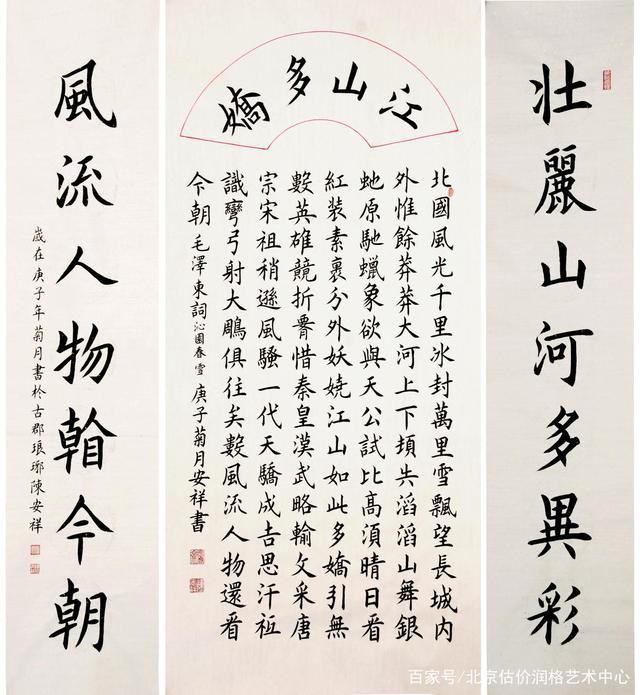 壯麗山河多異彩
江山多嬌
北國風光千里冰封萬里雪飄望長城内
外惟餘莽莽大河上下頓失滔滔山舞銀
虵原馳蠟象欲與天公試比高須晴日看
紅装素裹分外妖嬈江山如此多嬌引無
數英雄競折腰惜秦皇漢武略輸文采唐
宗宋祖稍遜風騷一代天驕成吉思汗祗
識彎弓射大鵰俱往矣數風流人物還看
今朝 毛澤東詞 沁園春雪 庚子菊月安祥書
風流人物看今朝
歲在庚子年菊月書於古郡琅琊陳安祥
百家号/北京估价润格艺术中心